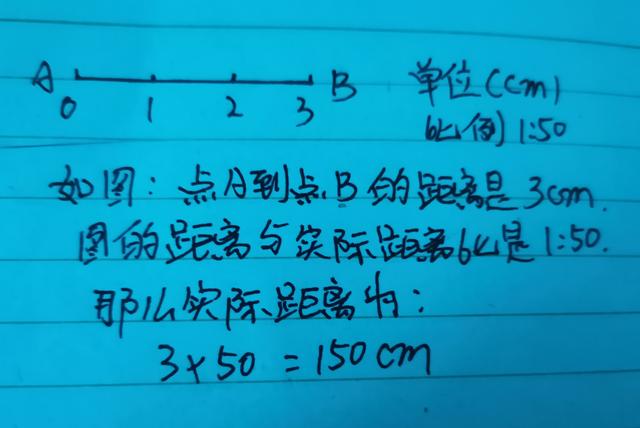 A B 单位(cm)
0 1 2 3
比例1:50
如图：点A到点B的距离是3cm.
图的距离与实际距离比是1:50.
那么实际距离为：
3×50=150cm